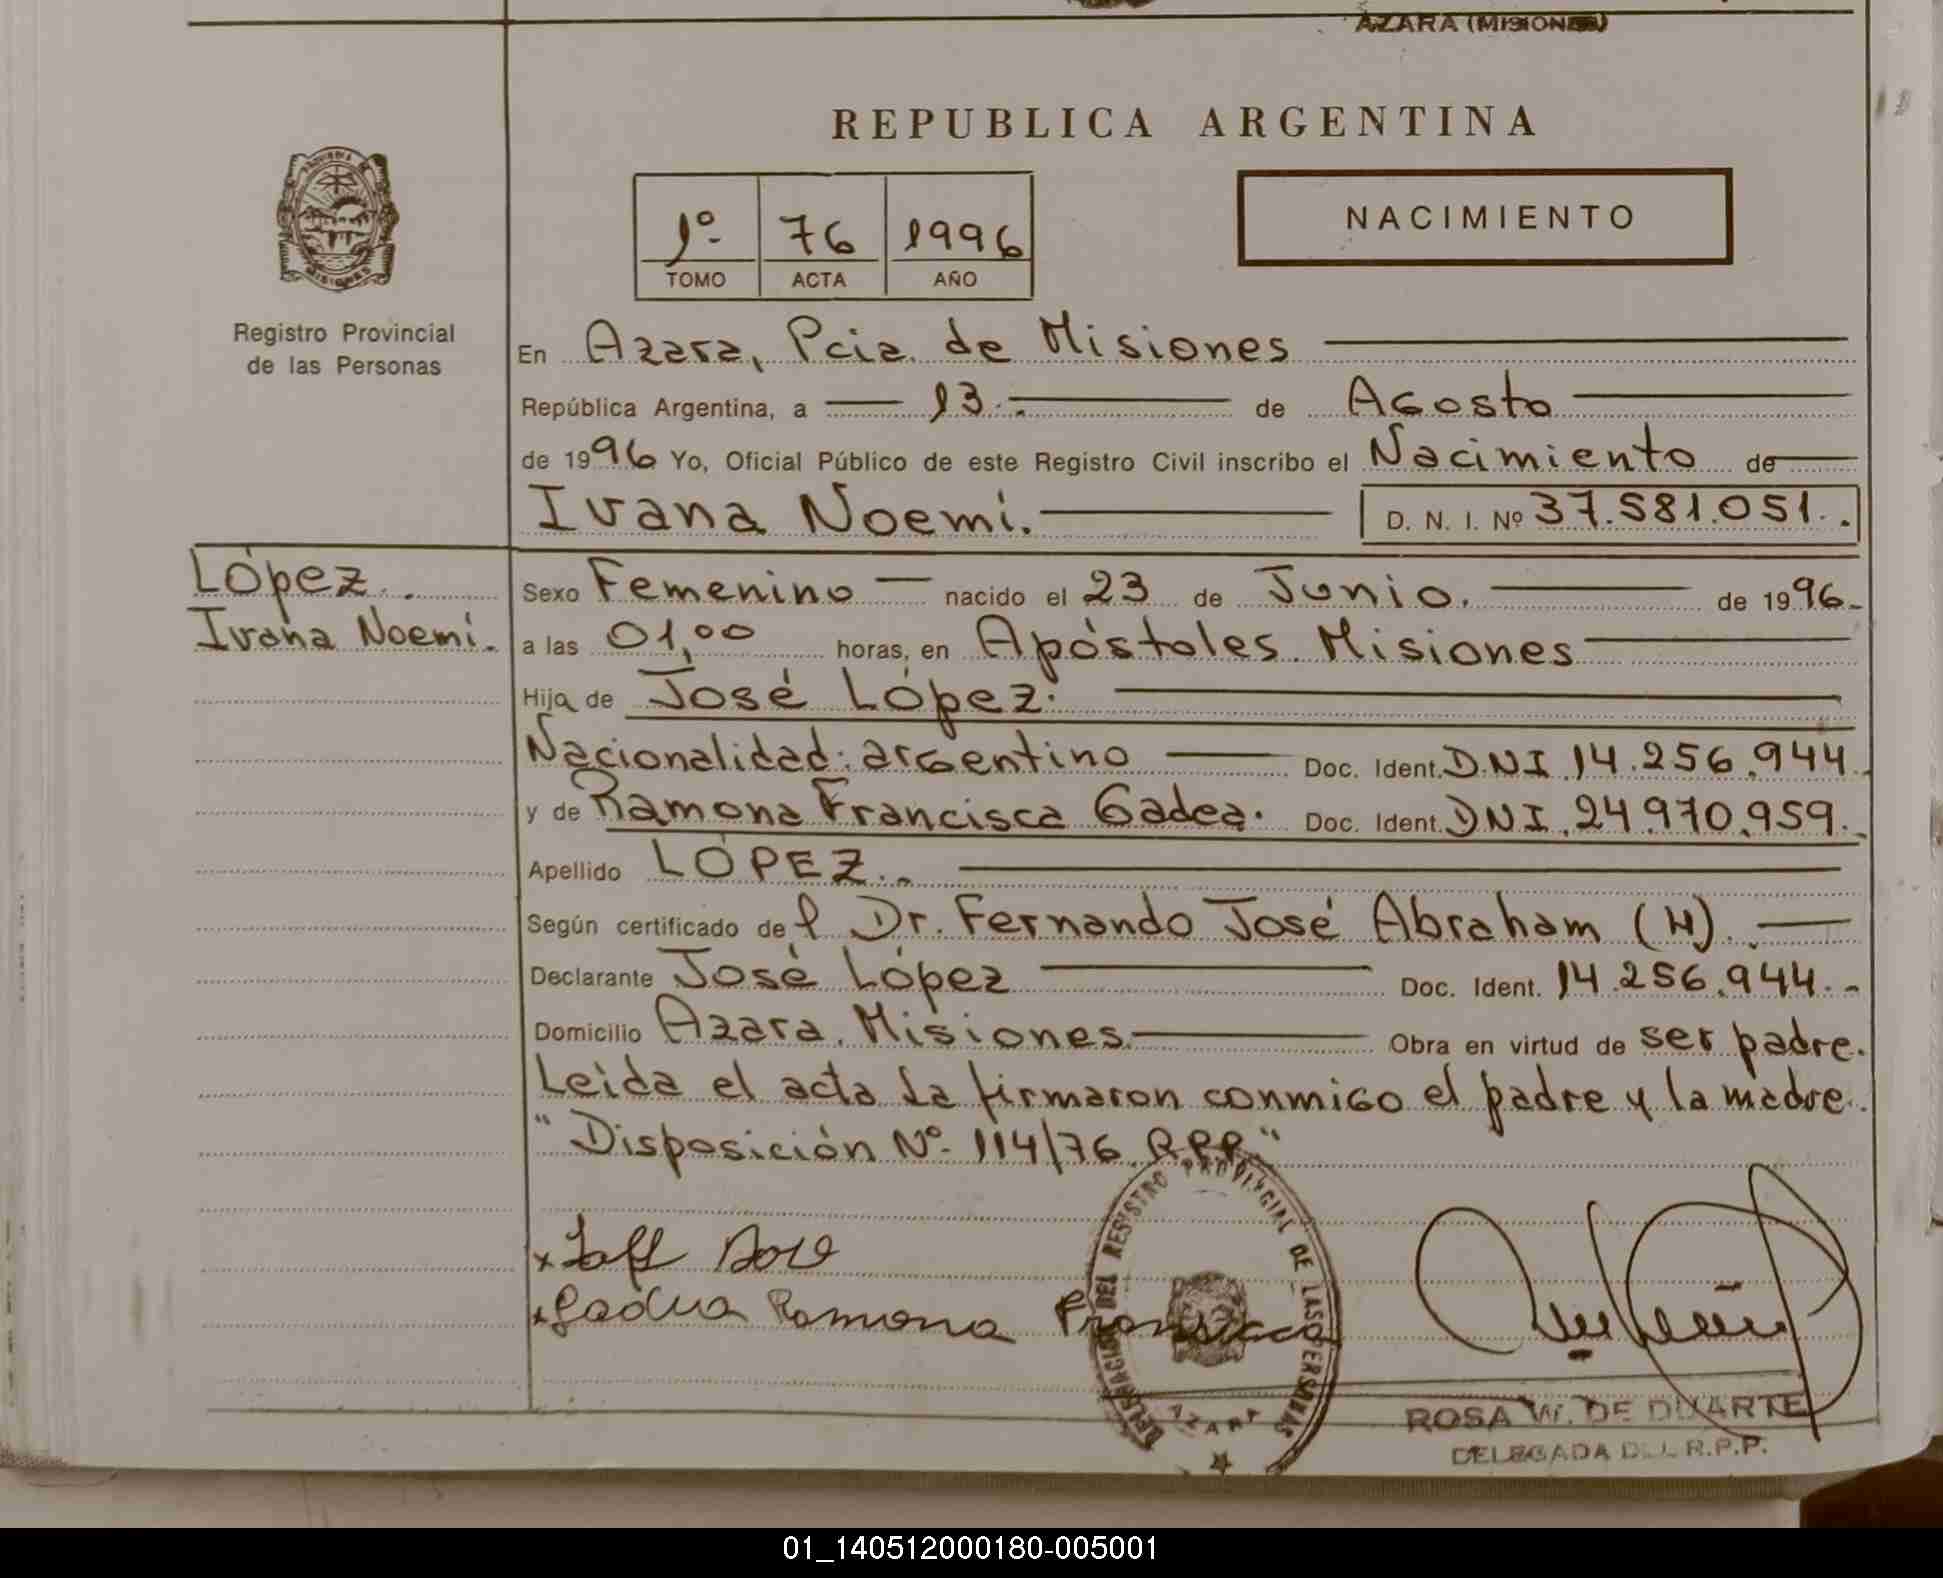 AZARA (MISIONES)
REPUBLICA ARGENTINA
1º 76 1996
TOMO ACTA AÑO
NACIMIENTO
PROVINCIA DE
MISIONES
Registro Provincial
de las Personas
En Azara, Pcia. de Misiones
República Argentina, a 13 de Agosto
de 1996 Yo, Oficial Público de este Registro Civil inscribo el Nacimiento de
Ivana Noemí. D. N. I. Nº 37.581.051.
López.
Ivana Noemí.
Sexo Femenino nacido el 23 de Junio. de 1996.
a las 01,00 horas, en Apóstoles. Misiones
Hija de José López.
Nacionalidad: argentino Doc. Ident. DNI 14.256.944.
y de Ramona Francisca Gadea. Doc. Ident. DNI 24.970.959.
Apellido LÓPEZ.
Según certificado del Dr. Fernando José Abraham (H).
Declarante José López Doc. Ident. 14.256.944.
Domicilio Azara. Misiones. Obra en virtud de ser padre.
Leida el acta la firmaron conmigo el padre y la madre.
"Disposición Nº 114/76 R.P.P."
Ramona Francisca
DELEGACION DEL REGISTRO PROVINCIAL DE LAS PERSONAS
AZARA
ROSA W. DE DUARTE
DELEGADA DEL R.P.P.
01_140512000180-005001